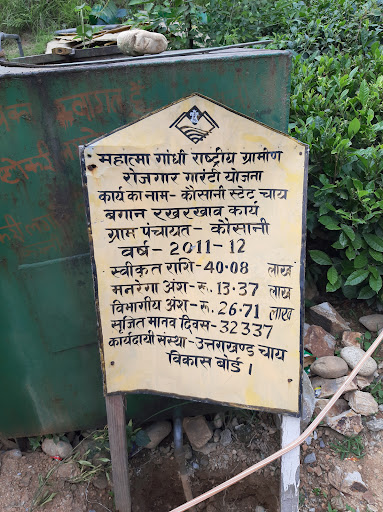 महात्मा गांधी राष्ट्रीय ग्रामीण
रोजगार गारंटी योजना
कार्य का नाम- कौसानी स्टेट चाय
बगान रखरखाव कार्य
ग्राम पंचायत- कौसानी
वर्ष - 2011-12
स्वीकृत राशि-40.08 लाख
मनरेगा अंश-रु. 13.37 लाख
विभागीय अंश-रु. 26.71 लाख
सृजित मानव दिवस-32337
कार्यदायी संस्था-उत्तराखण्ड चाय
विकास बोर्ड।